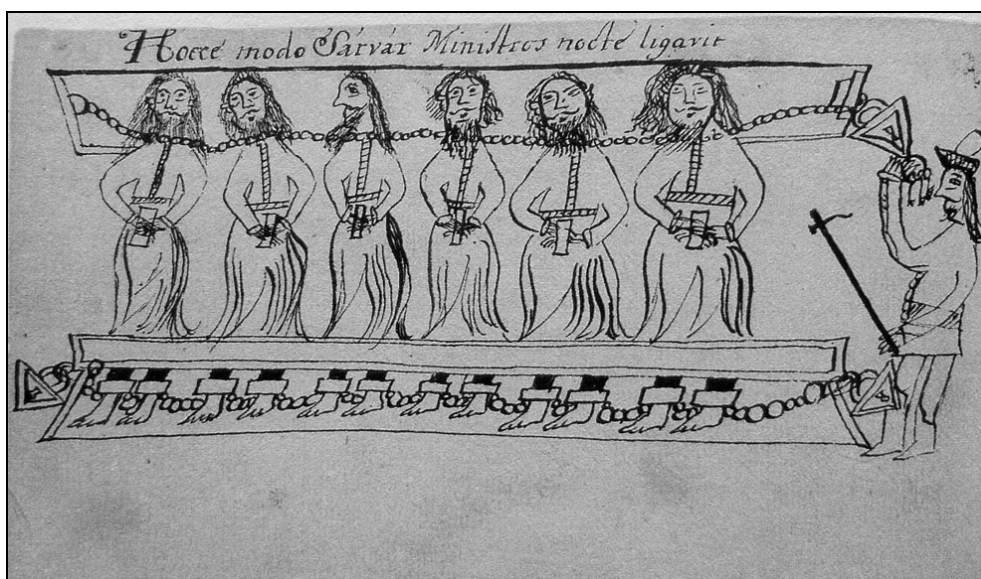 Hocce modo Sárvár Ministros nocte ligavit